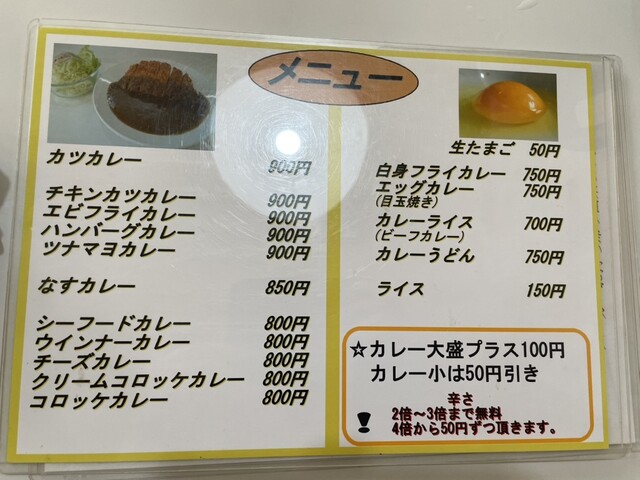 メニュー
カツカレー 900円
チキンカツカレー 900円
エビフライカレー 900円
ハンバーグカレー 900円
ツナマヨカレー 900円
なすカレー 850円
シーフードカレー 800円
ウインナーカレー 800円
チーズカレー 800円
クリームコロッケカレー 800円
コロッケカレー 800円
生たまご 50円
白身フライカレー 750円
エッグカレー 750円
(目玉焼き)
カレーライス 700円
(ビーフカレー)
カレーうどん 750円
ライス 150円
☆カレー大盛プラス100円
カレー小は50円引き
辛さ
2倍〜3倍まで無料
! 4倍から50円ずつ頂きます。